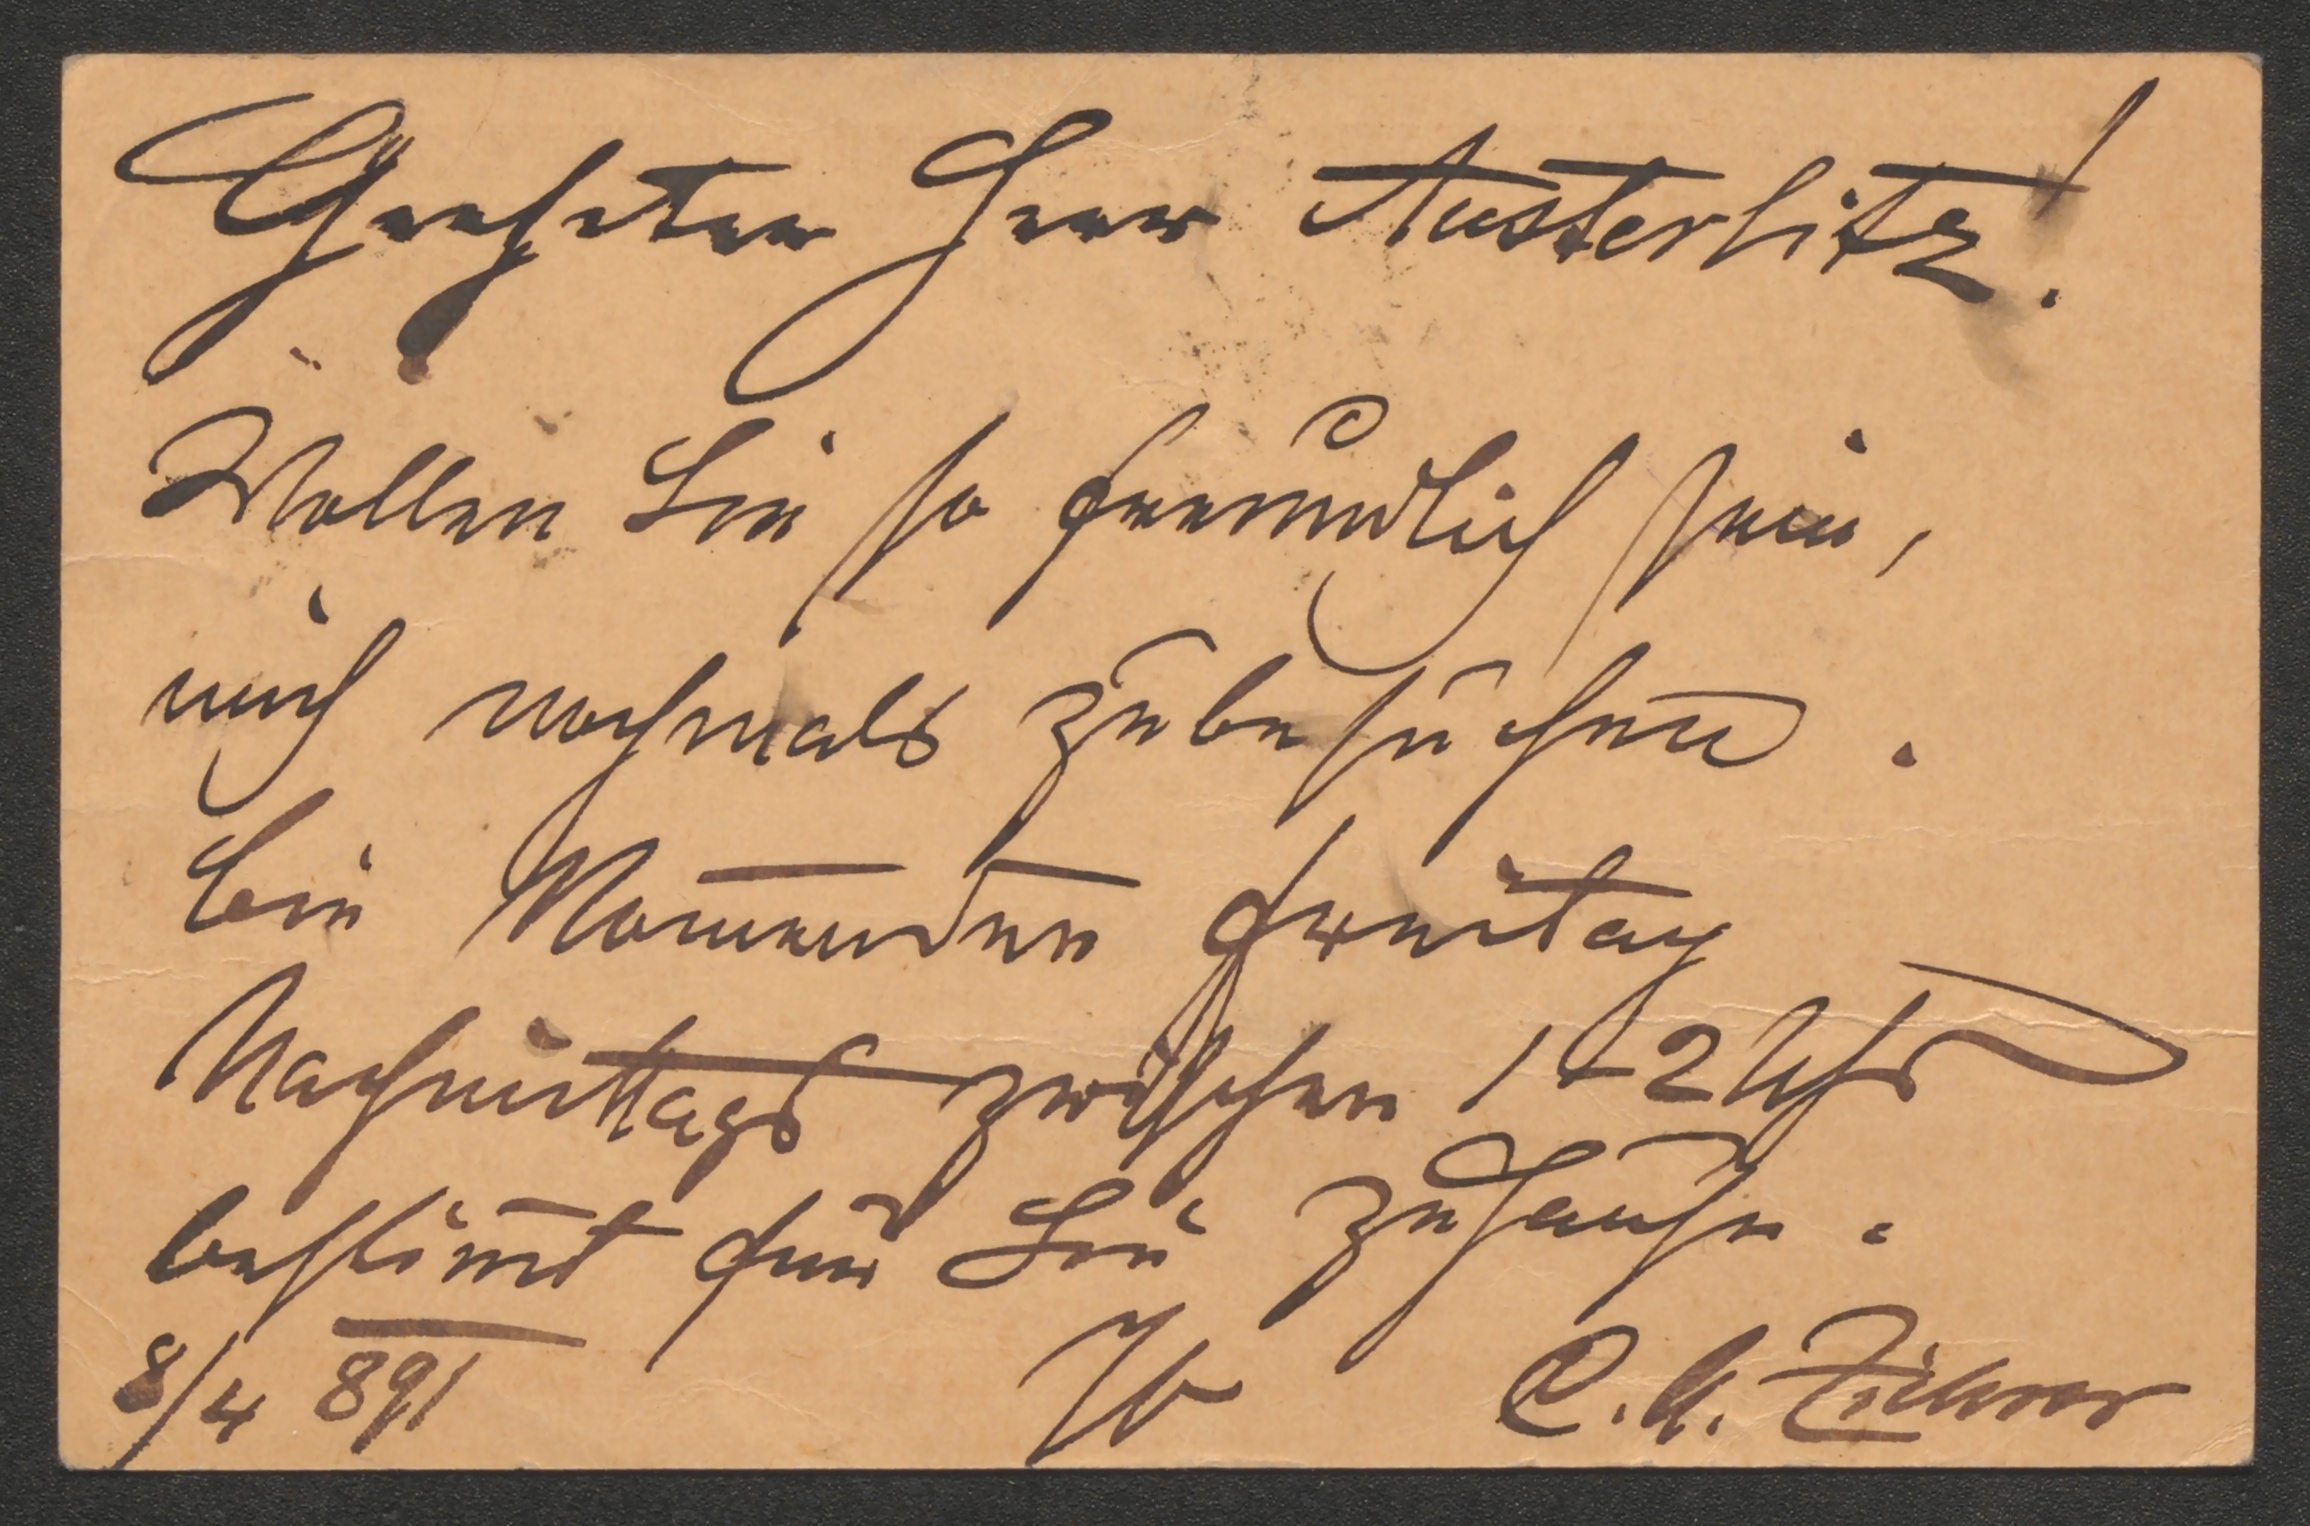 Geehrter Herr Austerlitz!
Wollen Sie so freundlich sein,
mich nochmals zu besuchen.
bin Kommenden Freitag
Nachmittags zwischen 1–2 Uhr
bestim̅t für Sie zuhause.
8/4 891 Ihr C. M. Ziehrer